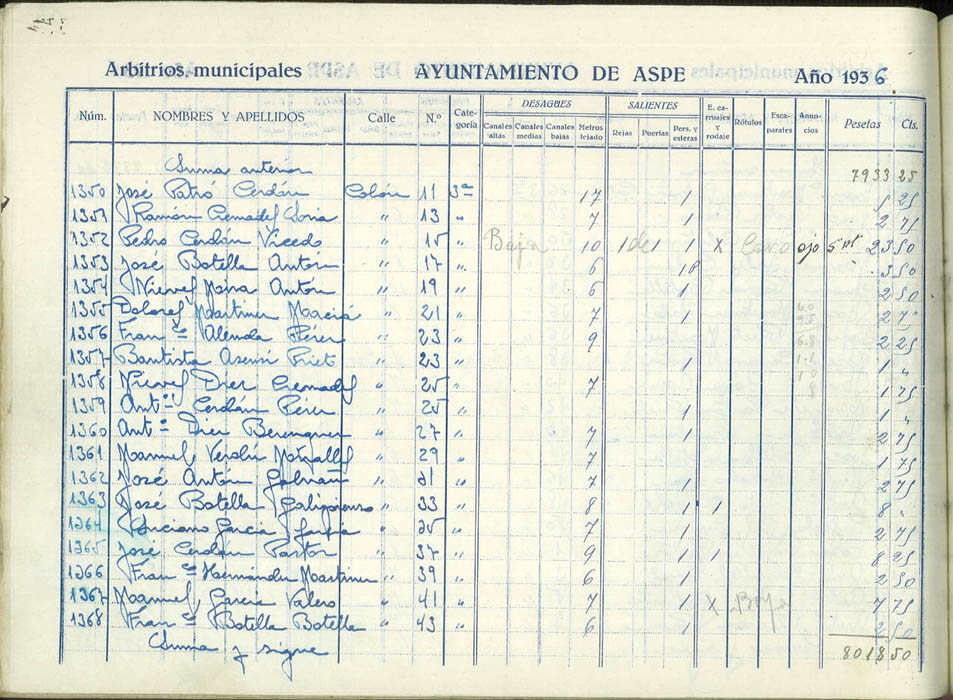 Arbitrios municipales AYUNTAMIENTO DE ASPE Año 1936
Núm. NOMBRES Y APELLIDOS Calle N.º Categoría DESAGUES SALIENTES E. carruajes y rodaje Rótulos Escaparates Anuncios Pesetas Cts.
Canales altas Canales medias Canales bajas Metros tejado Rejas Puertas Pers. y esteras
Suma anterior 7933 25
1350 José Cerdán Colón 11 3ª 17 1 5 25
1351 Ramón Cremades 〃 13 〃 7 1 2 75
1352 Pedro Cerdán Vicedo 〃 15 〃 Baja 10 1 de 1 1 X ojo 5 pt 23 50
1353 José Botella Antón 〃 17 〃 6 3 50
1354 Nieves Antón 〃 19 〃 6 1 2 50
1355 Dolores Martinez Maciá 〃 21 〃 7 1 2 75
1356 Franco Alenda Pérez 〃 23 〃 9 2 25
1357 Bautista Asensi Prieto 〃 23 〃 1 1 〃
1358 Nieves Diez Cremades 〃 25 〃 7 1 75
1359 Antº Cerdán Pérez 〃 25 〃 1 1 〃
1360 Antº Diez Berenguer 〃 27 〃 7 1 2 75
1361 Manuel Verdú 〃 29 〃 7 1 75
1362 José Antón Galvañ 〃 31 〃 7 1 2 75
1363 José Botella 〃 33 〃 8 1 1 8 〃
1364 Garcia 〃 35 〃 7 1 2 75
1365 José Cerdán Pastor 〃 37 〃 9 1 1 8 25
1366 Franco Hernández Martinez 〃 39 〃 6 1 2 50
1367 Manuel Garcia Valero 〃 41 〃 7 1 X Baja 7 75
1368 Franco Botella Botella 〃 43 〃 6 1 2 50
Suma y sigue 8018 50